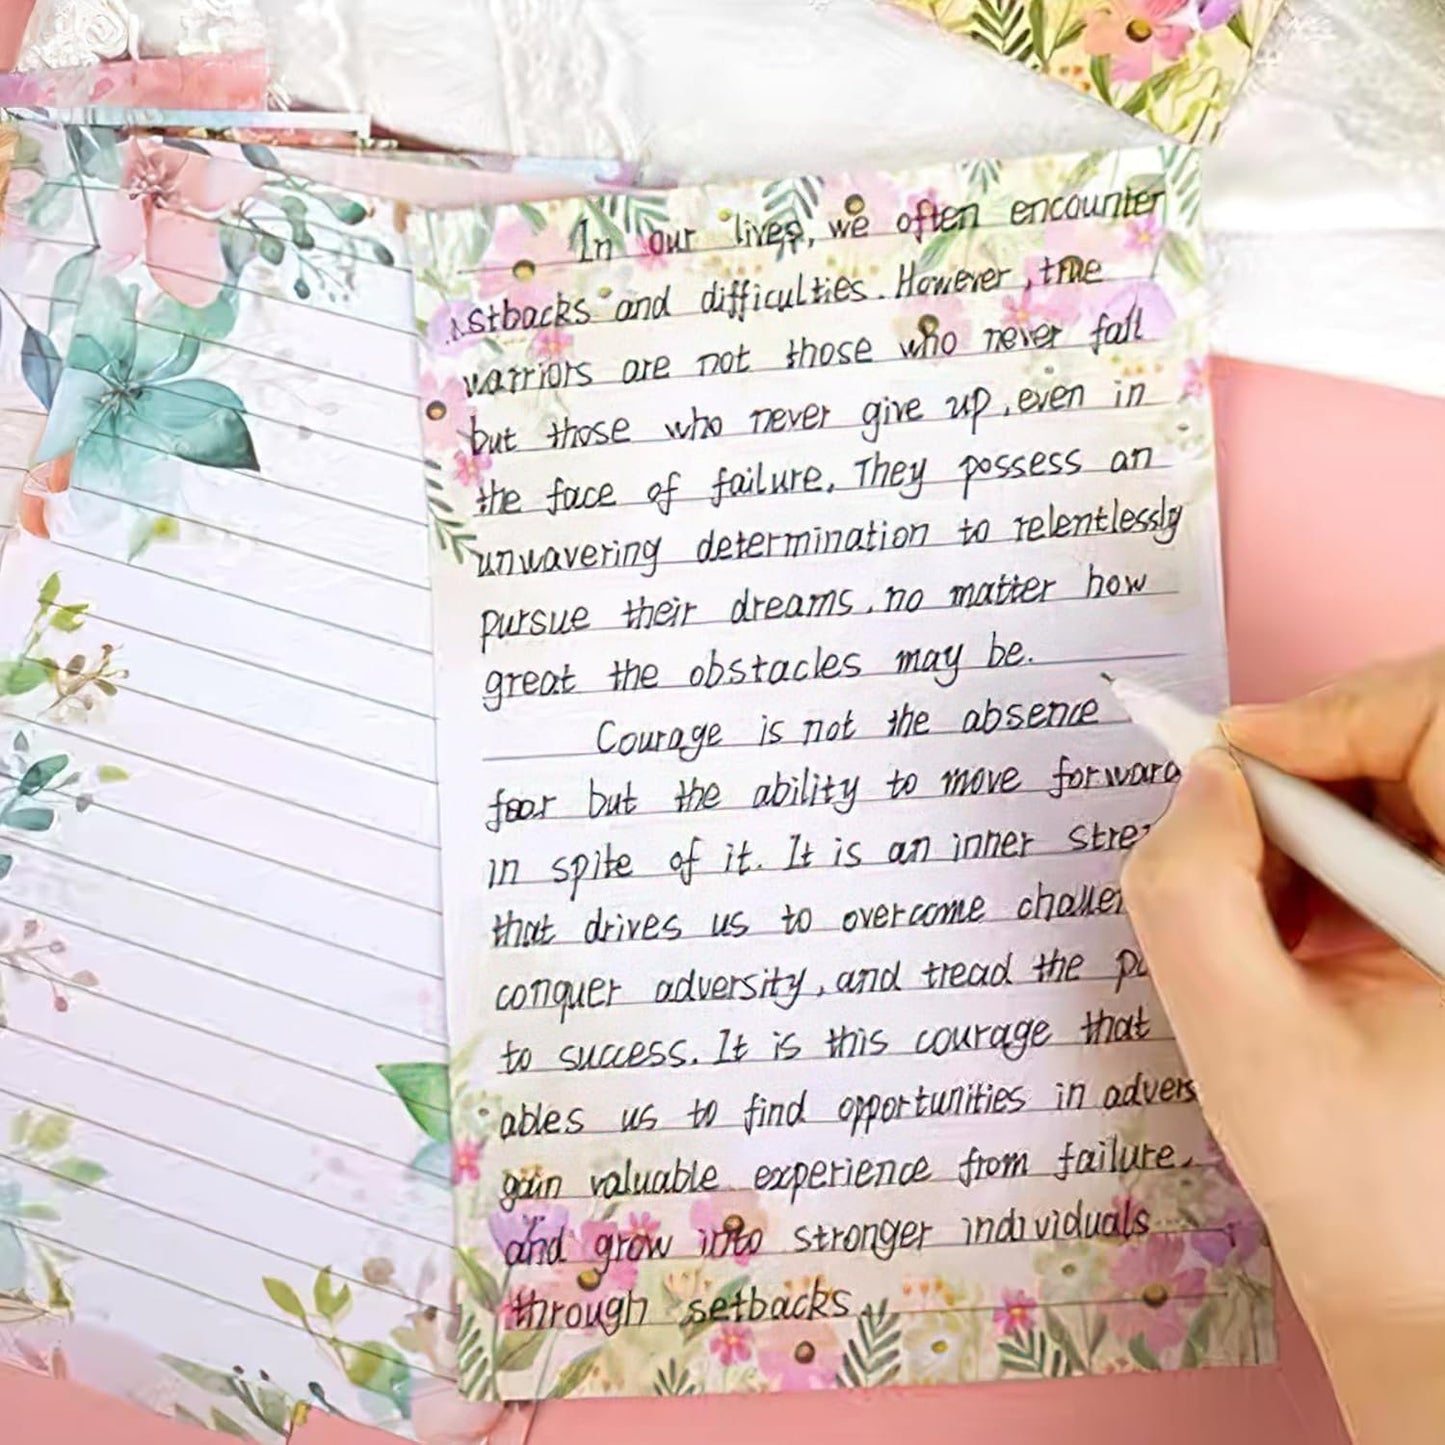 In our lives, we often encounter
stbacks and difficulties. However, true
warriors are not those who never fall
but those who never give up, even in
the face of failure. They possess an
unwavering determination to relentlessly
pursue their dreams, no matter how
great the obstacles may be.
Courage is not the absence
fear but the ability to move forward
in spite of it. It is an inner
that drives us to overcome
conquer adversity, and tread the
to success. It is this courage that
ables us to find opportunities in advers
gain valuable experience from failure,
and grow into stronger individuals
through setbacks.